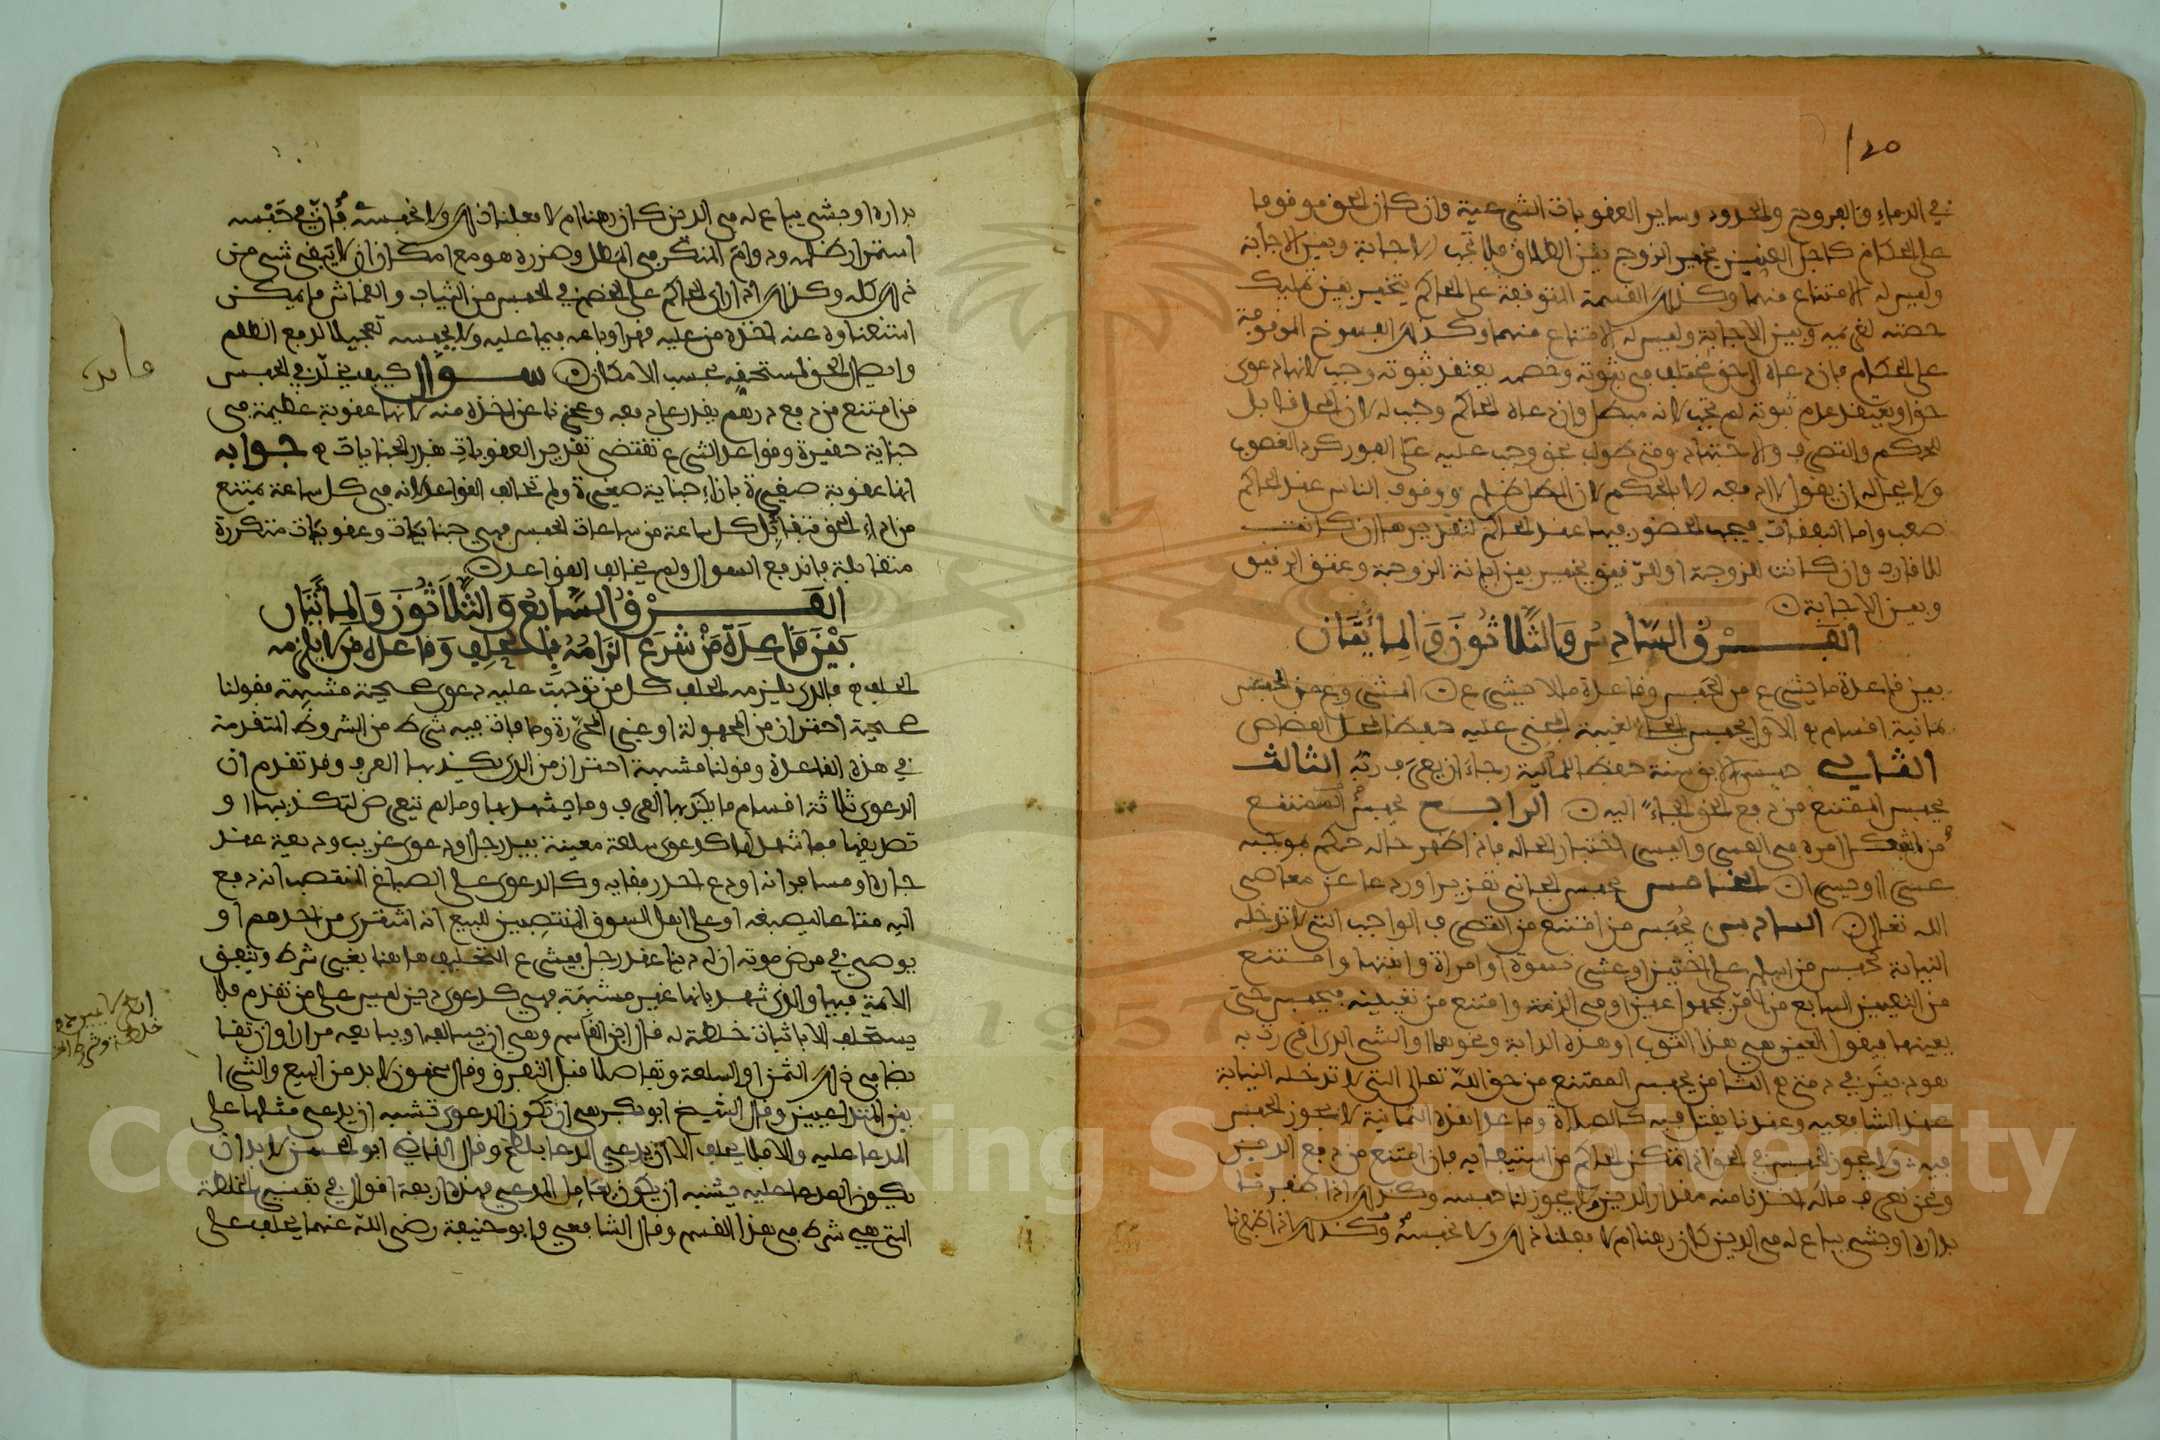 ١٢٥
في الدماء والفروج والحدود وساير العقوبات الشرعية وان كان الحق موقوفا
على الحكام كاجل العنين يخير الزوج بين الطلاق فلا تجب الاجابة وبين الاجابة
وليس له الامتناع منهما وكذلك القسمة المتوقفة على الحاكم يتخير بين تمليك
حصته لغريمه وبين الاجابة وليس له الامتناع منهما وكذلك الفسوخ الموقوفة
على الحكام فان دعاه الى حق مختلف في ثبوته وخصمه يعتقد ثبوته وجب لانها دعوى
حق او يعتقد عدم ثبوته لم تجب لانه مبطل وان دعاه الحاكم وجب له لان المحل قابل
للحكم والتصرف والاجتهاد ومتى طولب بحق وجب عليه على الفور كرد الغصوب
ولا يحل له ان يقول لا ادفعه الا بالحكم لان المطل ظلم ووقوف الناس عند الحاكم
صعب واما النفقات فيجب الحضور فيها عند الحاكم لتقديرها ان كانت
للاقارب وان كانت للزوجة او للرقيق يخير بين ابانة الزوجة وعتق الرقيق
وبين الاجابة
الفرق السادس والثلاثون والمائتان
بين قاعدة ما يشرع من الحبس وقاعدة ما لا يشرع المشروع من الحبس
ثمانية اقسام الاول يحبس الجاني لغيبة المجني عليه حفظا لمحل القصاص
الثاني حبس الابق سنة حفظا للمالية رجاء ان يعرف ربه الثالث
يحبس الممتنع من دفع الحق الجاء اليه الرابع يحبس الممتنع
من اشكل امره في العسر واليسر اختبارا لحاله فاذا ظهر حاله حكم بموجبه
عسرا او يسرا الخامس يحبس الجاني تعزيرا وردعا عن معاصي
الله تعالى السادس يحبس من امتنع من التصرف الواجب التي لا تدخله
النيابة كحبس من اسلم على اختين او عشر نسوة او امراة وابنتها وامتنع
من التعيين السابع من اقر بمجهول عين او في الذمة وامتنع من تعيينه فيحبس حتى
يعينهما فيقول العين هي هذا الثوب او هذه الدابة ونحوهما او الشي الذي اقررت به
هو دينار في ذمتي الثامن يحبس الممتنع من حق الله تعالى التي لا تدخله النيابة
عند الشافعيه وعندنا يقتل فيه كالصلاة وما عدا هذه الثمانية لا يجوز الحبس
فيه ولا يجوز الحبس في الحق اذا تمكن الحاكم من استيفايه فان امتنع من دفع الدين
ونحن نعرف ماله اخذنا منه مقدار الدين ولا يجوز لنا حبسه وكذلك اذا ظفرنا
بداره او بشي يباع له في الدين كان رهنا ام لا فعلنا ذلك ولا نحبسه وكذلك اذا ظفرنا
بداره او بشي يباع له في الدين كان رهنا ام لا فعلنا ذلك ولا نحبسه فان في حبسه
استمرار ظلمه ودوام المنكر في المطل وضرره هو مع امكان ان لا يبقى شي من
ذلك كله وكذلك اذا راى الحاكم على الخصم في الحبس من الثياب والقماش ما يمكن
استيفاوه عنه اخذه من عليه قهرا وباعه فيما عليه ولا يحبسه تعجيلا لدفع الظلم
وايصال الحق لمستحقه بحسب الامكان سؤال كيف يخلد في الحبس
من امتنع من دفع درهم يقدر على دفعه وعجزنا عن اخذه منه لانها عقوبة عظيمة في
جناية حقيرة وقواعد الشرع تقتضي تقدير العقوبات بقدر الجنايات جوابه
انها عقوبة صغيرة بازاء جناية صغيرة ولم تخالف القواعد لانه في كل ساعة يمتنع
من اداء الحق فتقابل كل ساعة من ساعات الحبس فهي جنايات وعقوبات متكررة
متقابلة فاندفع السوال ولم يخالف القواعد
الفرق السابع والثلاثون والمائتان
بين قاعدة من شرع الزامه بالحلف وقاعدة من لا يلزمه
الحلف فالذي يلزمه الحلف كل من توجهت عليه دعوى صحيحة مشبهة فقولنا
صحيحة احتراز من المجهولة او غير المحررة وما فات فيه شرط من الشروط المتقدمة
في هذه القاعدة وقولنا مشبهة احتراز من الذي يكذبها العرف وقد تقدم ان
الدعوى ثلاثة اقسام ما يكذبها العرف وما يشهد بها وما لم تتعرض لتكذيبها او
تصديقها فما شهد لها كدعوى سلعة معينة بيد رجل او دعوى غريب وديعة عند
جاره او مسافر انه اودع احد رفقايه وكالدعوى على الصباغ المنتصب انه دفع
اليه متاعا ليصبغه او على اهل السوق المنتصبين للبيع انه اشترى من احدهم او
يوصي في مرض موته ان له دينا عند رجل فيشرع التحليف هاهنا بغير شرط وتتفق
الائمة فيها والذي شهد بانها غير مشبهة فهي كدعوى دين ليس على من تقدم فلا
يستحلف الا باثبات خلطة له قال ابن القاسم وهي ان يسالفه او يبايعه مرارا وان تقا
بضا في ذلك الثمن او السلعة وتفاصلا قبل التفرق وقال سحنون لا بد من البيع والشرا
بين المتداعيين وقال الشيخ ابو بكر هي ان تكون الدعوى تشبه ان يدعي مثلها على
المدعا عليه والا فلا يحلف الا ان يدعي المدعا بلطخ وقال القاضي ابو الحسن لا بد ان
يكون المدعا عليه يشبه ان يكون يعامل المدعي فهذه اربعة اقوال في تفسير الخلطة
التي هي شرط في هذا القسم وقال الشافعي وابو حنيفة رضي الله عنهما يحلف على